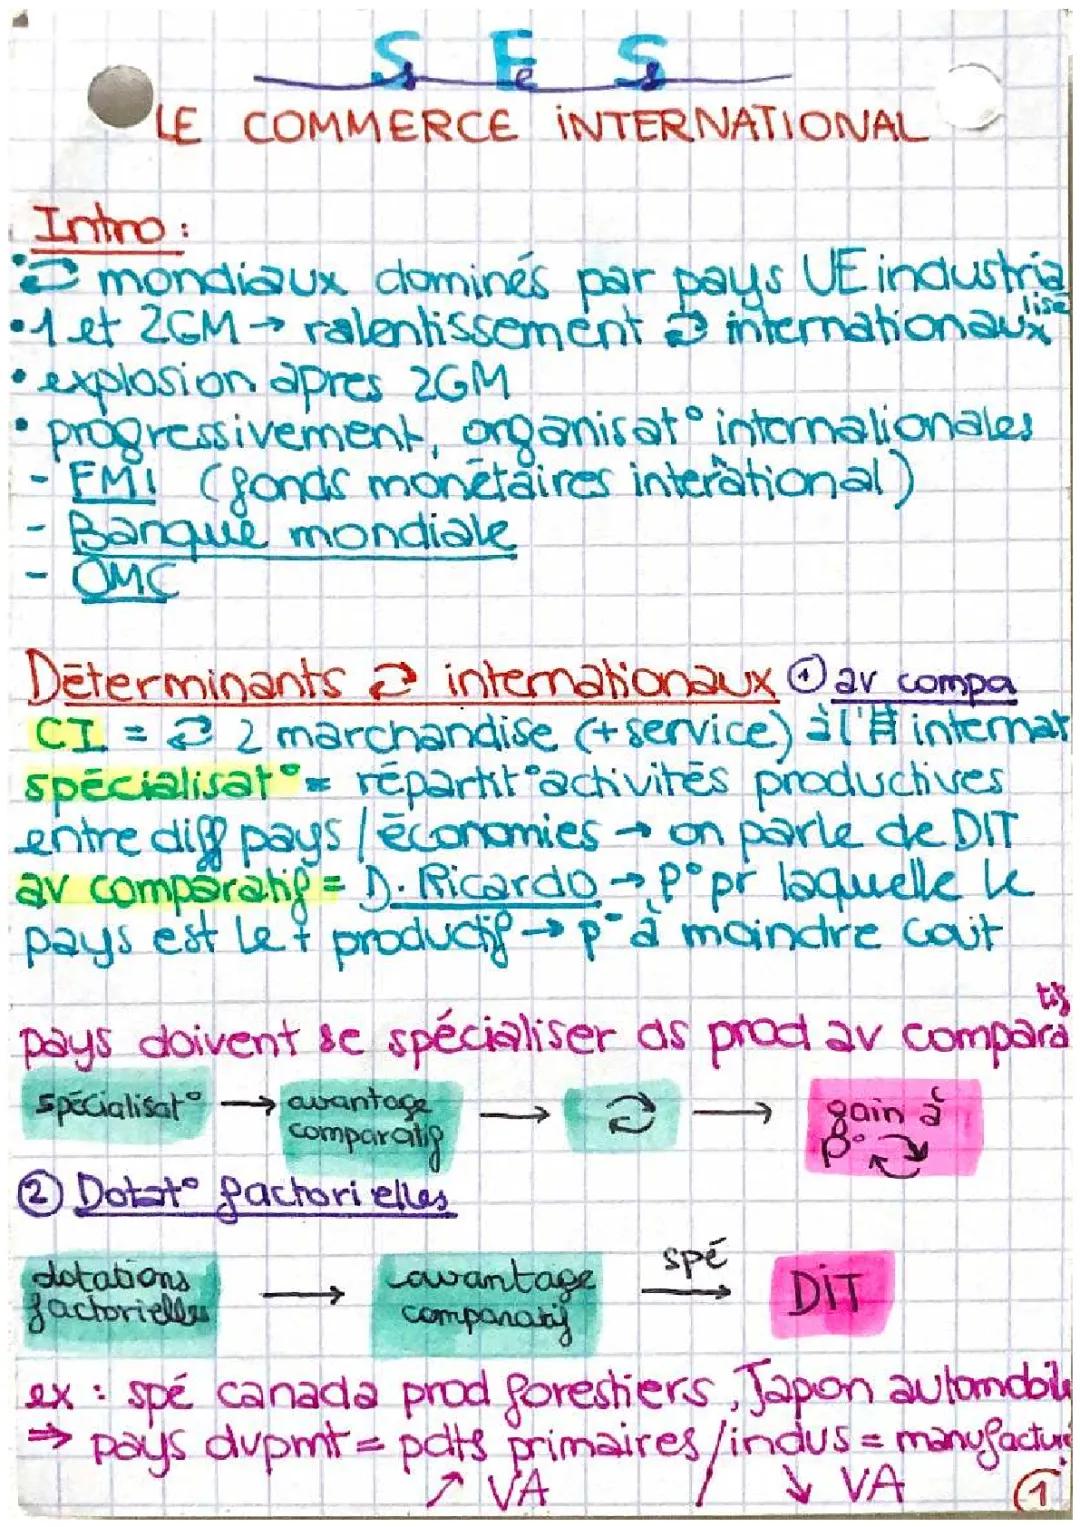 SES
LE COMMERCE INTERNATIONAL
Intro :
• ⇄ mondiaux dominés par pays UE industrialisé
• 1 et 2GM → ralentissement ⇄ internationaux
• explosion apres 2GM
• progressivement, organisat° internationales
- FMI (fonds monétaires interational)
- Banque mondiale
- OMC
Déterminants ⇄ internationaux ① av compa
CI = ⇄ 2 marchandise (+ service) à l'É internat
spécialisat° = répartit° activités productives
entre diff pays / économies → on parle de DIT
av comparatif = D. Ricardo → p° pr laquelle le
pays est le + productif → p° à moindre cout
pays doivent se spécialiser ds prod av comparatif
spécialisat° → avantage comparatif → ⇄ → gain à p° ⇄
② Dotat° factorielles
dotations factorielles → avantage comparatif spé → DIT
ex : spé canada prod forestiers, Japon automobile
⇒ pays dvpmt = pdts primaires / indus = manufacturé
↗ VA / ↘ VA
①